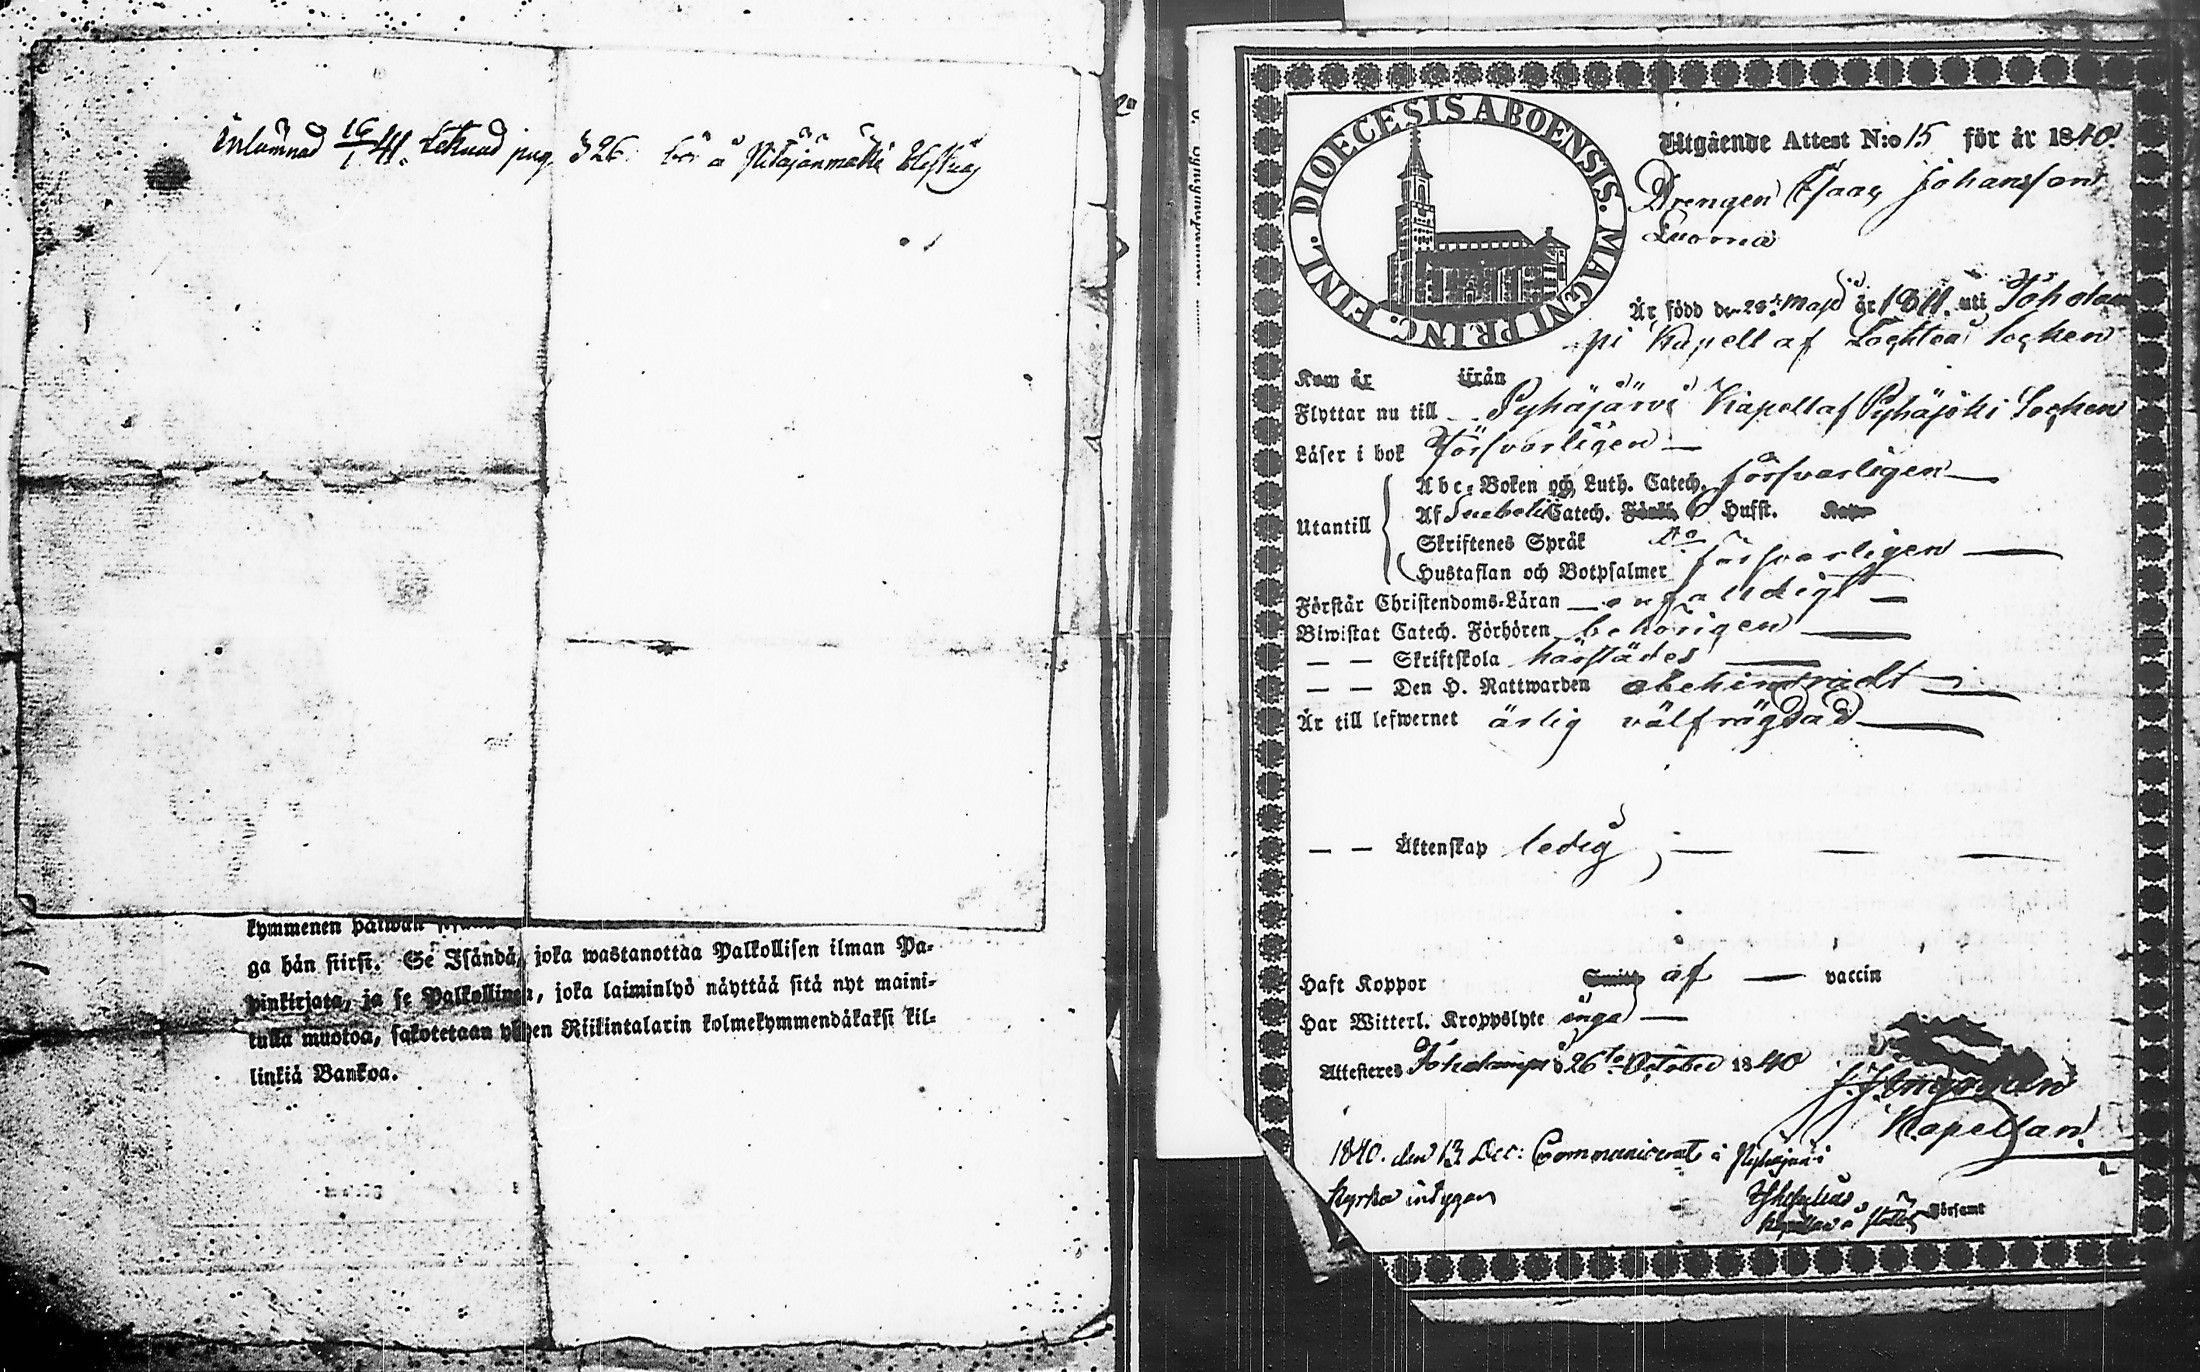 Inlämnad 16/1 41. teknad pag. 326. bor å Pitäjänmäki
kymmenen päiwän
ga hän siirsi. Se Isändä, joka wastanottaa Palkollisen ilman Pa-
pinkirjata, ja se Palkollinen, joka laiminlyö näyttää sitä nyt maini-
tulla muotoa, sakotetaan yhden Riikintalarin kolmekymmendäkaksi kil-
linkiä Bankoa.
DIOECESIS ABOENSIS. MAGNI PRINC. FINL.
Utgående Attest N:o 15 för år 1840.
Drengen Isaac Johansson
Luoma
Är född den 28 Maji år 1811. uti Toholam
pi Kapell af Lochteå Socken
Kom år ifrån
Flyttar nu till Pyhäjärvi Kapell af Pyhäjoki Socken
Läser i bok försvarligen
Utantill
Abc-Boken och Luth. Catech. försvarligen
Af Svebelii Catech. Hufst.
Skriftenes Språk Do
Hustaflan och Botpsalmer försvarligen
Förstår Christendoms-Läran enfaldigt
Biwistat Catech. Förhören behörigen
— — Skriftskola härstädes
— — Den H. Nattwarden obehindradt
Är till lefwernet ärlig välfrägdad
— — Äktenskap ledig
Haft Koppor af vaccin
Har Witterl. Kroppslyte inga
Attesteres Toholampi d 26 October 1840
Kapellan
1840. den 13 Dec: Communicerat i Pyhäjärvi
Kyrka intygar
Församl